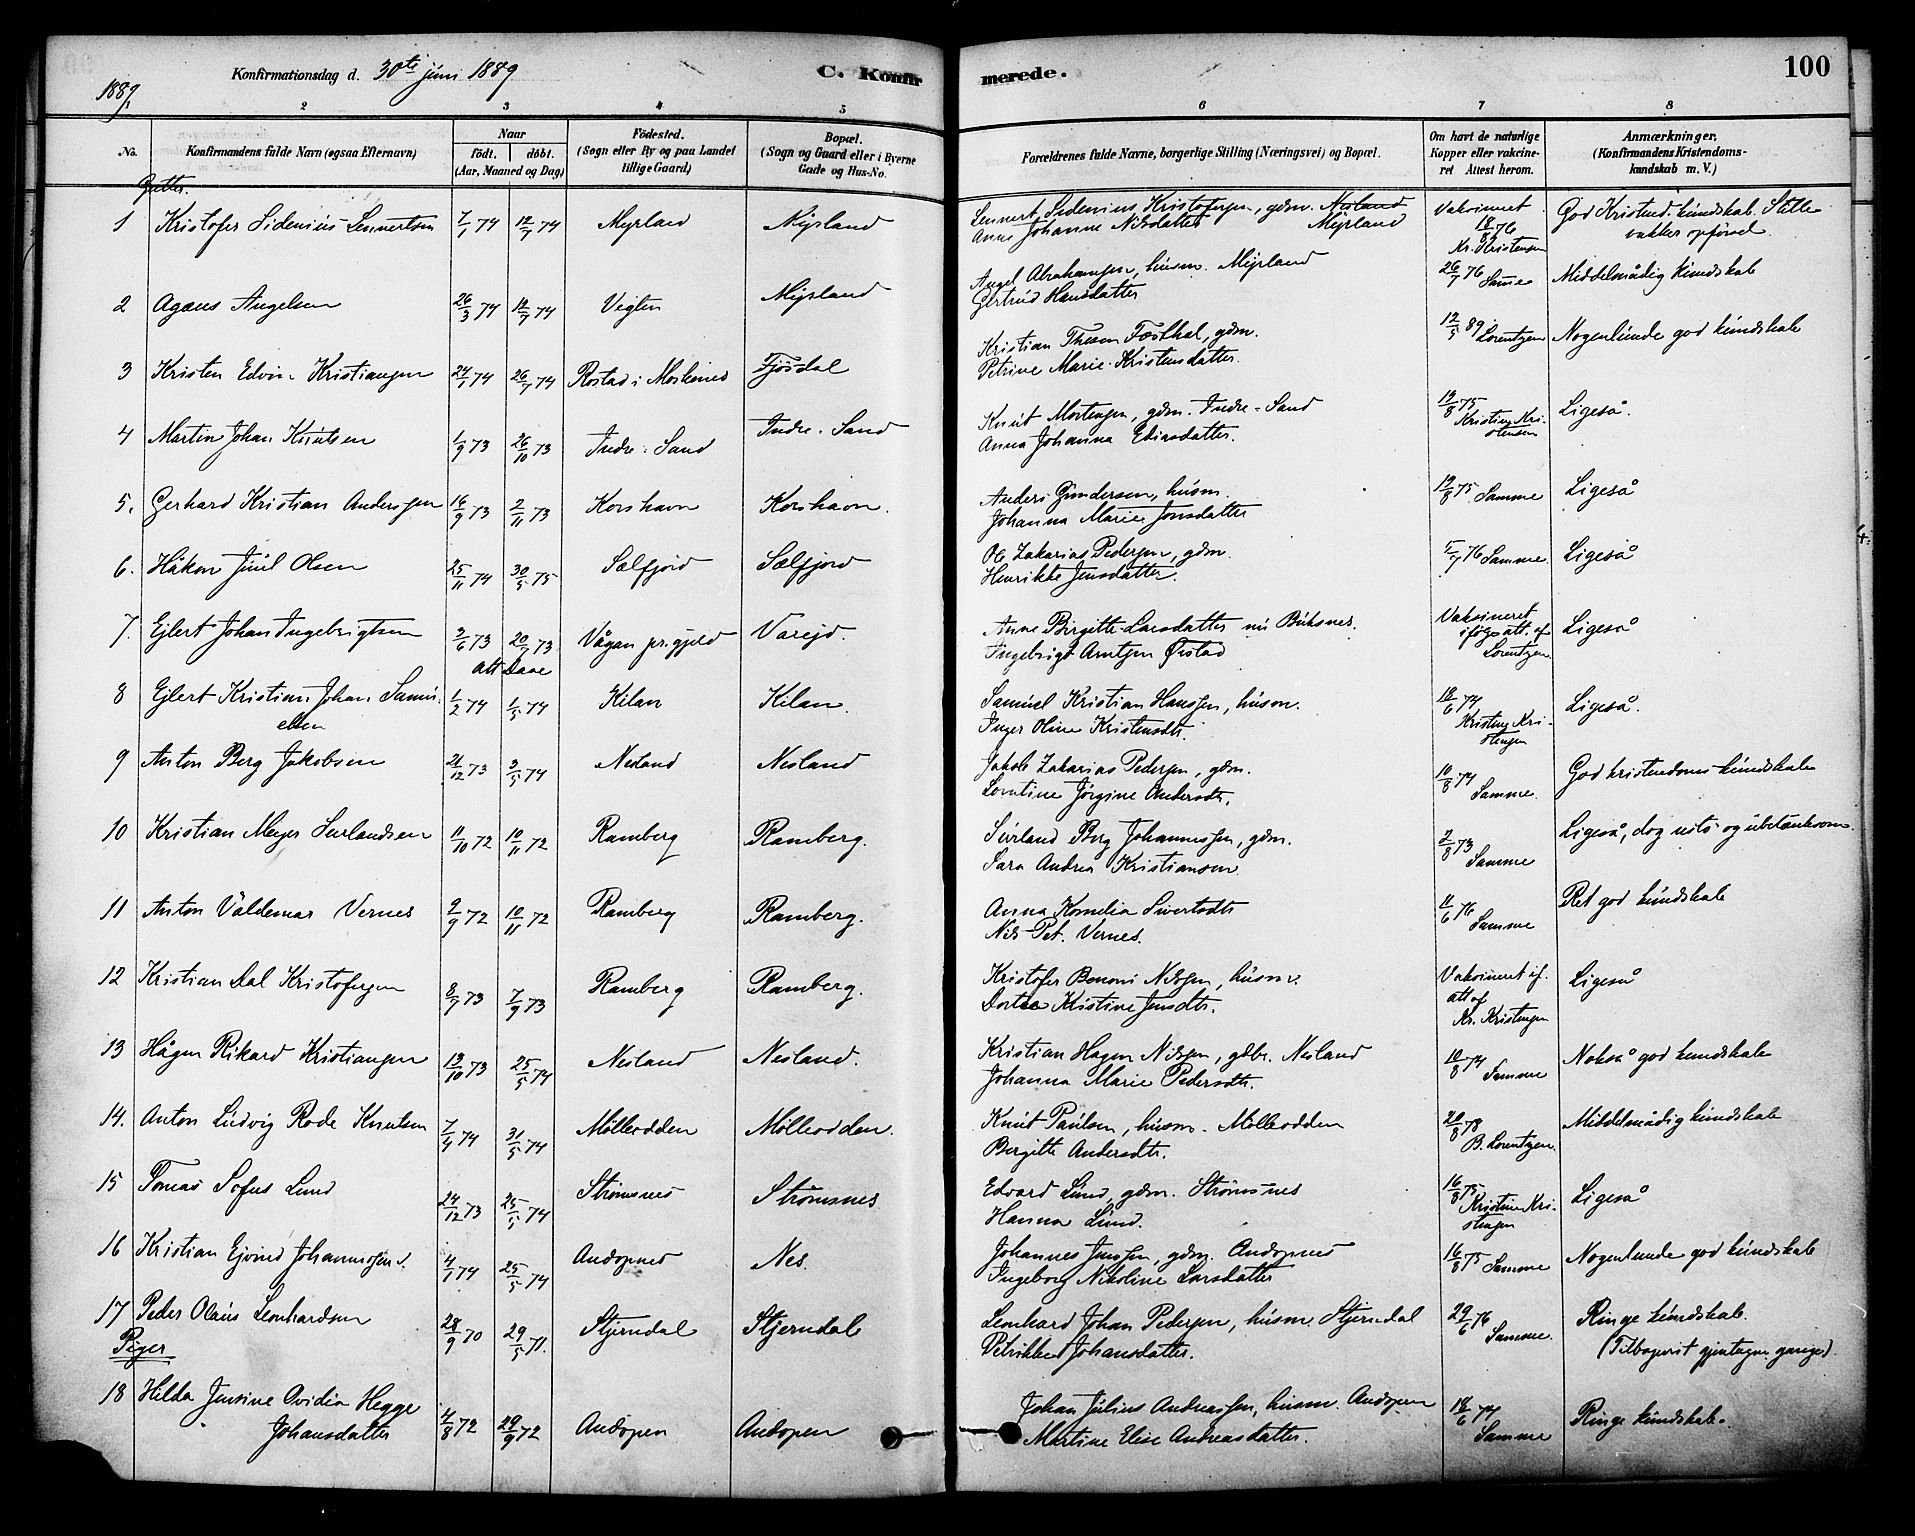 1889.
Konfirmationsdag d. 30te juni 1889
C. Konfirmerede.
100
2 3 4 5 6 7 8
No.
Konfirmandens fulde Navn (ogsaa Efternavn)
Naar
födt. döbt.
(Aar, Maaned og Dag)
Födested.
(Sogn eller By og paa Landet
tillige Gaard)
Bopæl.
(Sogn og Gaard eller i Byerne
Gade og Hus-No.
Forældrenes fulde Navne, borgerlige Stilling (Næringsvei) og Bopæl.
Om havt de naturlige
Kopper eller vakcine-
ret Attest herom.
Anmærkninger.
(Konfirmandens Kristendoms-
kundskab m. V.)
Gutter.
1 Kristofer Sidenius Lennertsen 7/1 74 12/7 74 Myrland Myrland Lennert Sidenius Kristofersen, gdm. Nesland Vaksineret God Kristend. kundskab. Stille
Anne Johanne Nilsdatter Myrland 18/8 76 vakker opførsel.
Kr. Kristensen
2 Agæus Angelsen 26/3 74 12/7 74 Vegten Myrland Angel Abrahamsen, husm. Myrland 26/7 76 Samme Middelmådig kundskab
Gertrud Hansdatter
3 Kristen Edvin Kristiansen 24/1 74 26/7 74 Rostad i Moskenes Fjøsdal Kristian Thesen, gdm. 12/5 89 Lorentzen Nogenlunde god kundskab
Petrine Marie Kristensdatter.
4 Martin Johan Knutsen 1/9 73 26/10 73 Indre-Sand Indre-Sand Knut Mortensen, gdm. Indre-Sand 19/8 75 Kristine Kri- Ligeså.
Anna Johanna Eliasdatter. stensen
5. Gerhard Kristian Anderssen 16/9 73 2/11 73 Korshavn Korshavn. Anders Gundersen, husm. 19/8 75 Samme Ligeså
Johanna Marie Jonsdatter
6. Håkon Juul Olsen 25/11 74 30/5 75 Sælfjord Sælfjord Ole Zakarias Pedersen, gdm. 5/7 76 Samme Ligeså
Henrikke Jensdatter.
7. Ejlert Johan Ingebrigtsen 3/6 73 20/7 73 Vågan pr.gjeld Vareid. Anne Birgitte Larsdatter nu Buksnes. Vaksineret Ligeså
att Daae Ingebrigt Arntsen Ørstad ifølge att. af
Lorentzen.
8 Ejlert Kristian Johan Samu- 1/2 74 1/5 74 Kilan Kilan. Samuel Kristian Hanssen, husm. 18/6 74 Ligeså.
elsen Inger Oline Kristensdtr. Kristine Kri-
stensen
9 Anton Berg Jakobsen 21/12 73 3/5 74 Nesland Nesland Jakob Zakarias Pedersen, gdm. 10/8 74 God kristendoms-kundskab
Lorntine Jørgine Andersdtr. Samme.
10 Kristian Meyer Surlandsen 11/10 72 10/11 72 Ramberg Ramberg. Surland Berg Johannessen, gdm. 2/8 73 Ligeså, dog uots- og ubetænksom.
Sara Andrea Kristiansen Samme
11 Anton Valdemar Vernes 9/9 72 10/11 72 Ramberg Ramberg. Anna Kornelia Sivertsdtr 11/6 76 Ret god kundskab
Nils Pet. Vernes. Samme
12 Kristian Dal Kristofersen 8/7 73 7/9 73 Ramberg Ramberg. Kristofer Benoni Nilssen, husm. Vaksineret if. Ligeså
Dortea Kristine Jensdtr. att af
Kr. Kristensen
13 Hågen Rikard Kristiansen 13/10 73 25/5 74 Nesland Nesland. Kristian Hagen Nilssen, gdbr. Nesland 10/8 74 Samme Nokså god kundskab
Johanna Marie Pedersdtr.
14. Anton Ludvig Rode Knutsen 7/4 74 31/5 74 Mølleodden Mølleodden. Knut Paulsen, husm. Mølleodden 20/8 78 Middelmådig kundskab
Bergitte Andersdtr. B. Lorentzen.
15 Tomas Sofus Lund 24/12 73 25/5 74 Strømsnes Strømsnes Edvard Lund, gdm. Strømsnes 16/8 75 Kristine Kri- Ligeså
Hanna Lund. stensen
16 Kristian Ejvind Johannessen. 4/1 74 25/5 74 Andopnes Nes. Johannes Jenssen, gdm. Andopnes 16/8 75 Samme Nogenlunde god kundskab
Ingeborg Nikoline Larsdatter
17 Peder Olaus Leonhardsen 28/9 70 29/5 71. Stjerndal Stjerndal Leonhard Johan Pedersen, husm. Stjerndal 29/6 76 Ringe kundskab.
Petrikke Johansdatter. Samme. (Tilbagevist gjentagne gange).
Piger
18 Hilda Jensine Ovidia Hegge 4/8 72 29/9 72 Andopen Andopen Johan Julius Andreassen, husm. Andopen 18/6 74 Ringe kundskab.
Johansdatter Martine Elise Andreasdatter. Samme